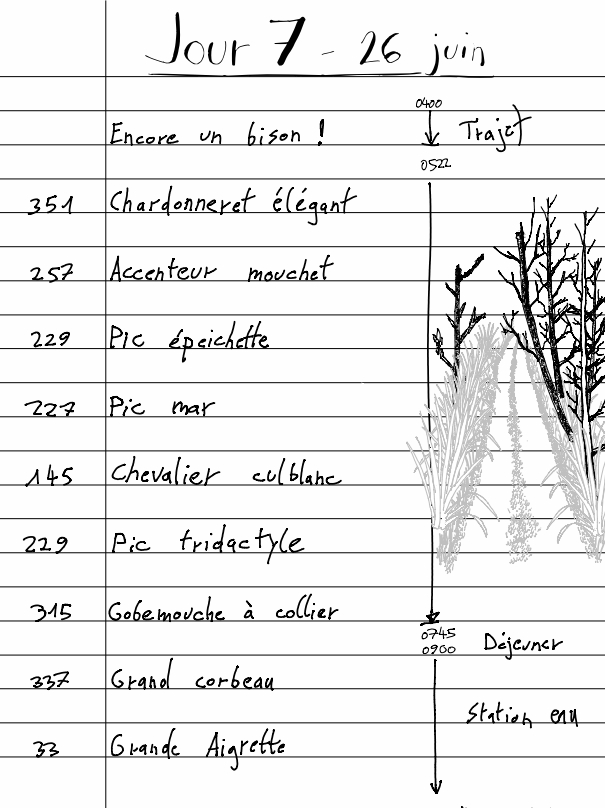 Jour 7 - 26 juin
0400
Encore un bison !
Trajet
0522
351 Chardonneret élégant
257 Accenteur mouchet
229 Pic épeichette
227 Pic mar
145 Chevalier culblanc
229 Pic tridactyle
315 Gobemouche à collier
0745
0900
Déjeuner
337 Grand corbeau
Station eau
33 Grande Aigrette